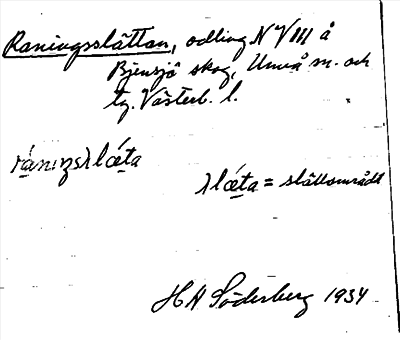 Raningsslåttan, odling N VIII å
Bjensjö skog, Umeå sn. och
tg. Västerb. l.
ránıŋsλlǽta
λlǽta = slåttområdt
HH Söderberg 1934